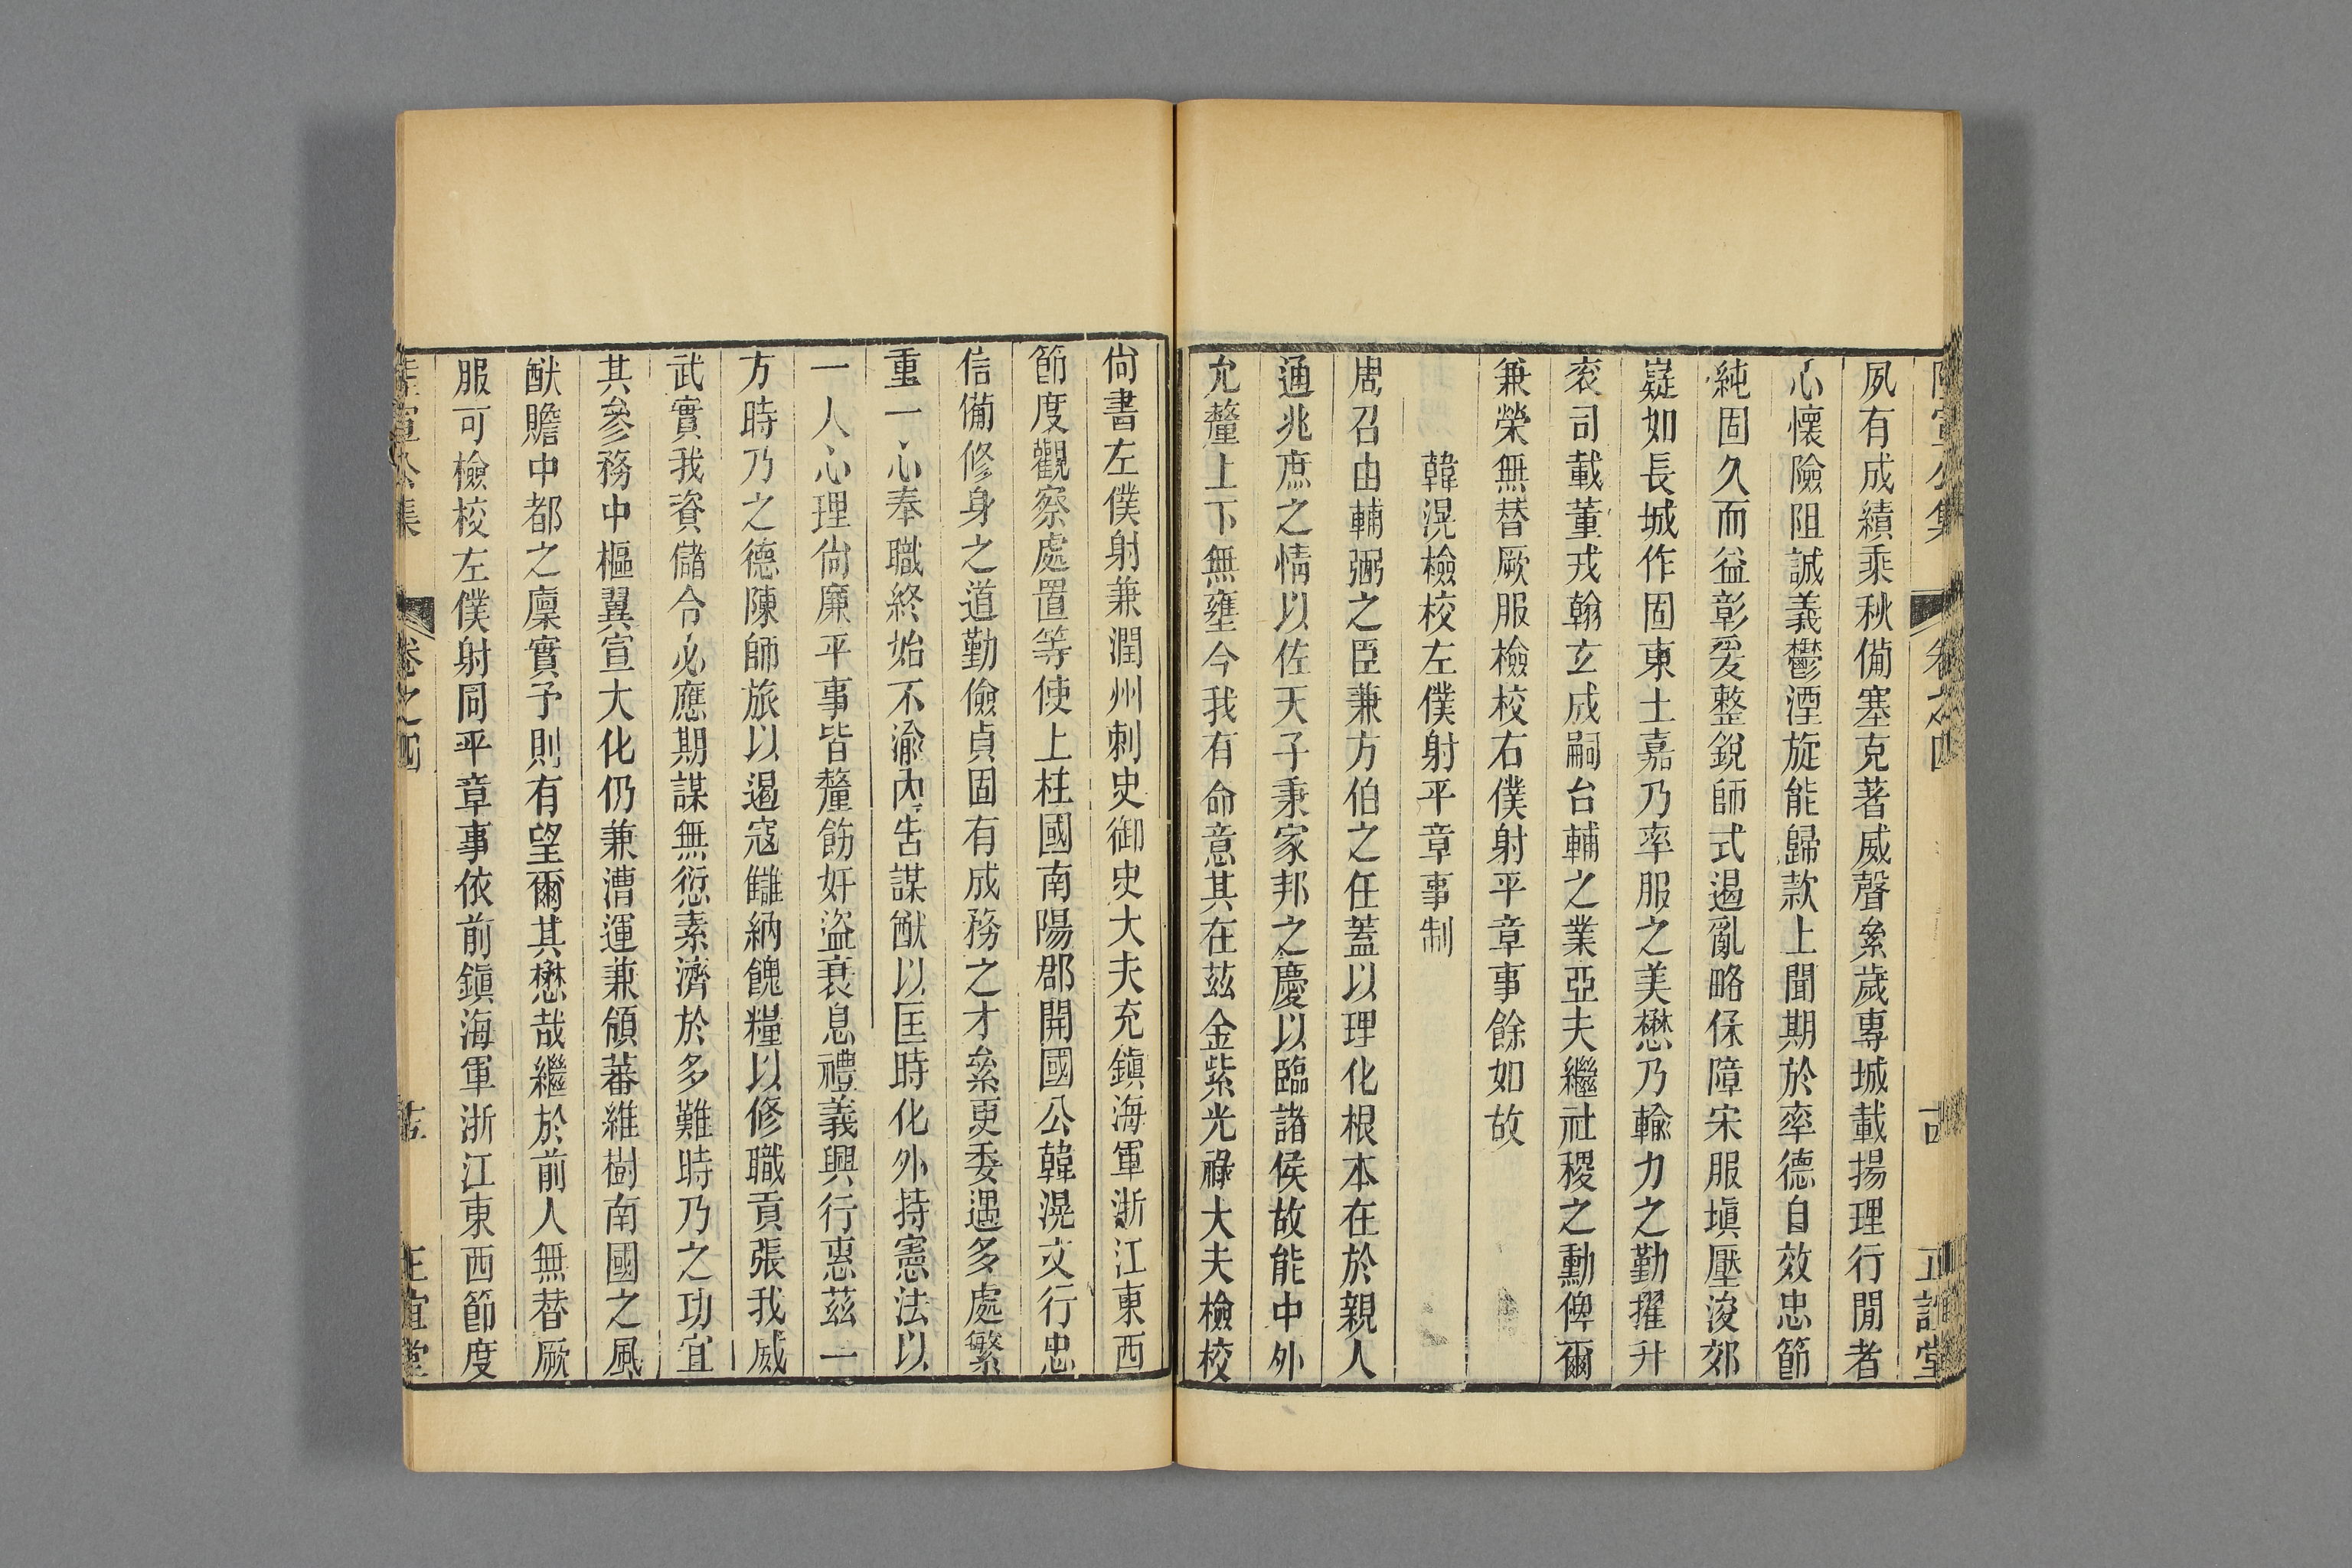 陸宣公集 卷之四 十四 正誼堂
夙有成績乘秋備塞克著威聲絫歲專城載揚理行閒者
心懷險阻誠義鬱湮旋能歸款上聞期於率德自效忠節
純固久而益彰爰整銳師式遏亂略保障宋服塡壓浚郊
嶷如長城作固東土嘉乃率服之美懋乃輸力之勤擢升
衮司載董戎翰玄成嗣台輔之業亞夫繼社稷之勳俾爾
兼榮無替厥服檢校右僕射平章事餘如故
韓滉檢校左僕射平章事制
周召由輔弼之臣兼方伯之任蓋以理化根本在於親人
通兆庶之情以佐天子秉家邦之慶以臨諸侯故能中外
允釐上下無壅今我有命意其在茲金紫光祿大夫檢校
尙書左僕射兼潤州刺史御史大夫充鎭海軍浙江東西
節度觀察處置等使上柱國南陽郡開國公韓滉文行忠
信備修身之道勤儉貞固有成務之才絫更委遇多處繁
重一心奉職終始不渝內吿謀猷以匡時化外持憲法以
一人心理尙廉平事皆釐飭奸盜衰息禮義興行惠茲一
方時乃之德陳師旅以遏寇讎納餽糧以修職貢張我威
武實我資儲令必應期謀無愆素濟於多難時乃之功宜
其參務中樞翼宣大化仍兼漕運兼領蕃維樹南國之風
猷贍中都之廩實予則有望爾其懋哉繼於前人無替厥
服可檢校左僕射同平章事依前鎭海軍浙江東西節度
陸宣公集 卷之四 正誼堂